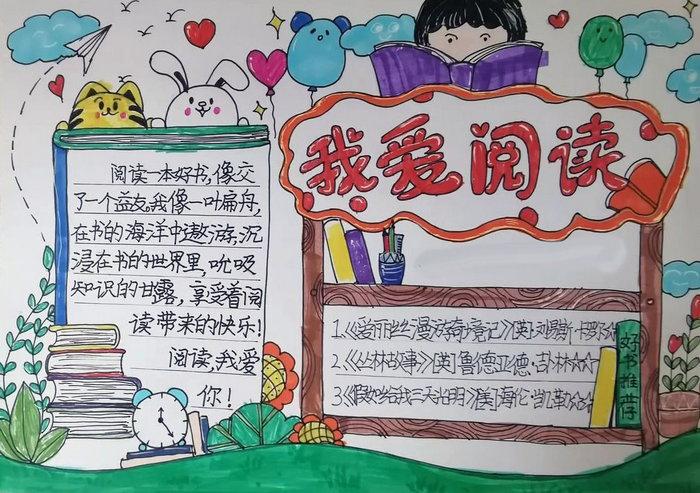 我爱阅读
阅读一本好书,像交
了一个益友,我像一叶扁舟,
在书的海洋中遨游,沉
浸在书的世界里,吮吸
知识的甘露,享受着阅
读带来的快乐!
阅读,我爱
你!
1.《爱丽丝漫游奇境记》[英]刘易斯·卡罗尔
2.《丛林故事》[英]鲁德亚德·吉卜林
3《假如给我三天光明》[美]海伦·凯勒
好书推荐